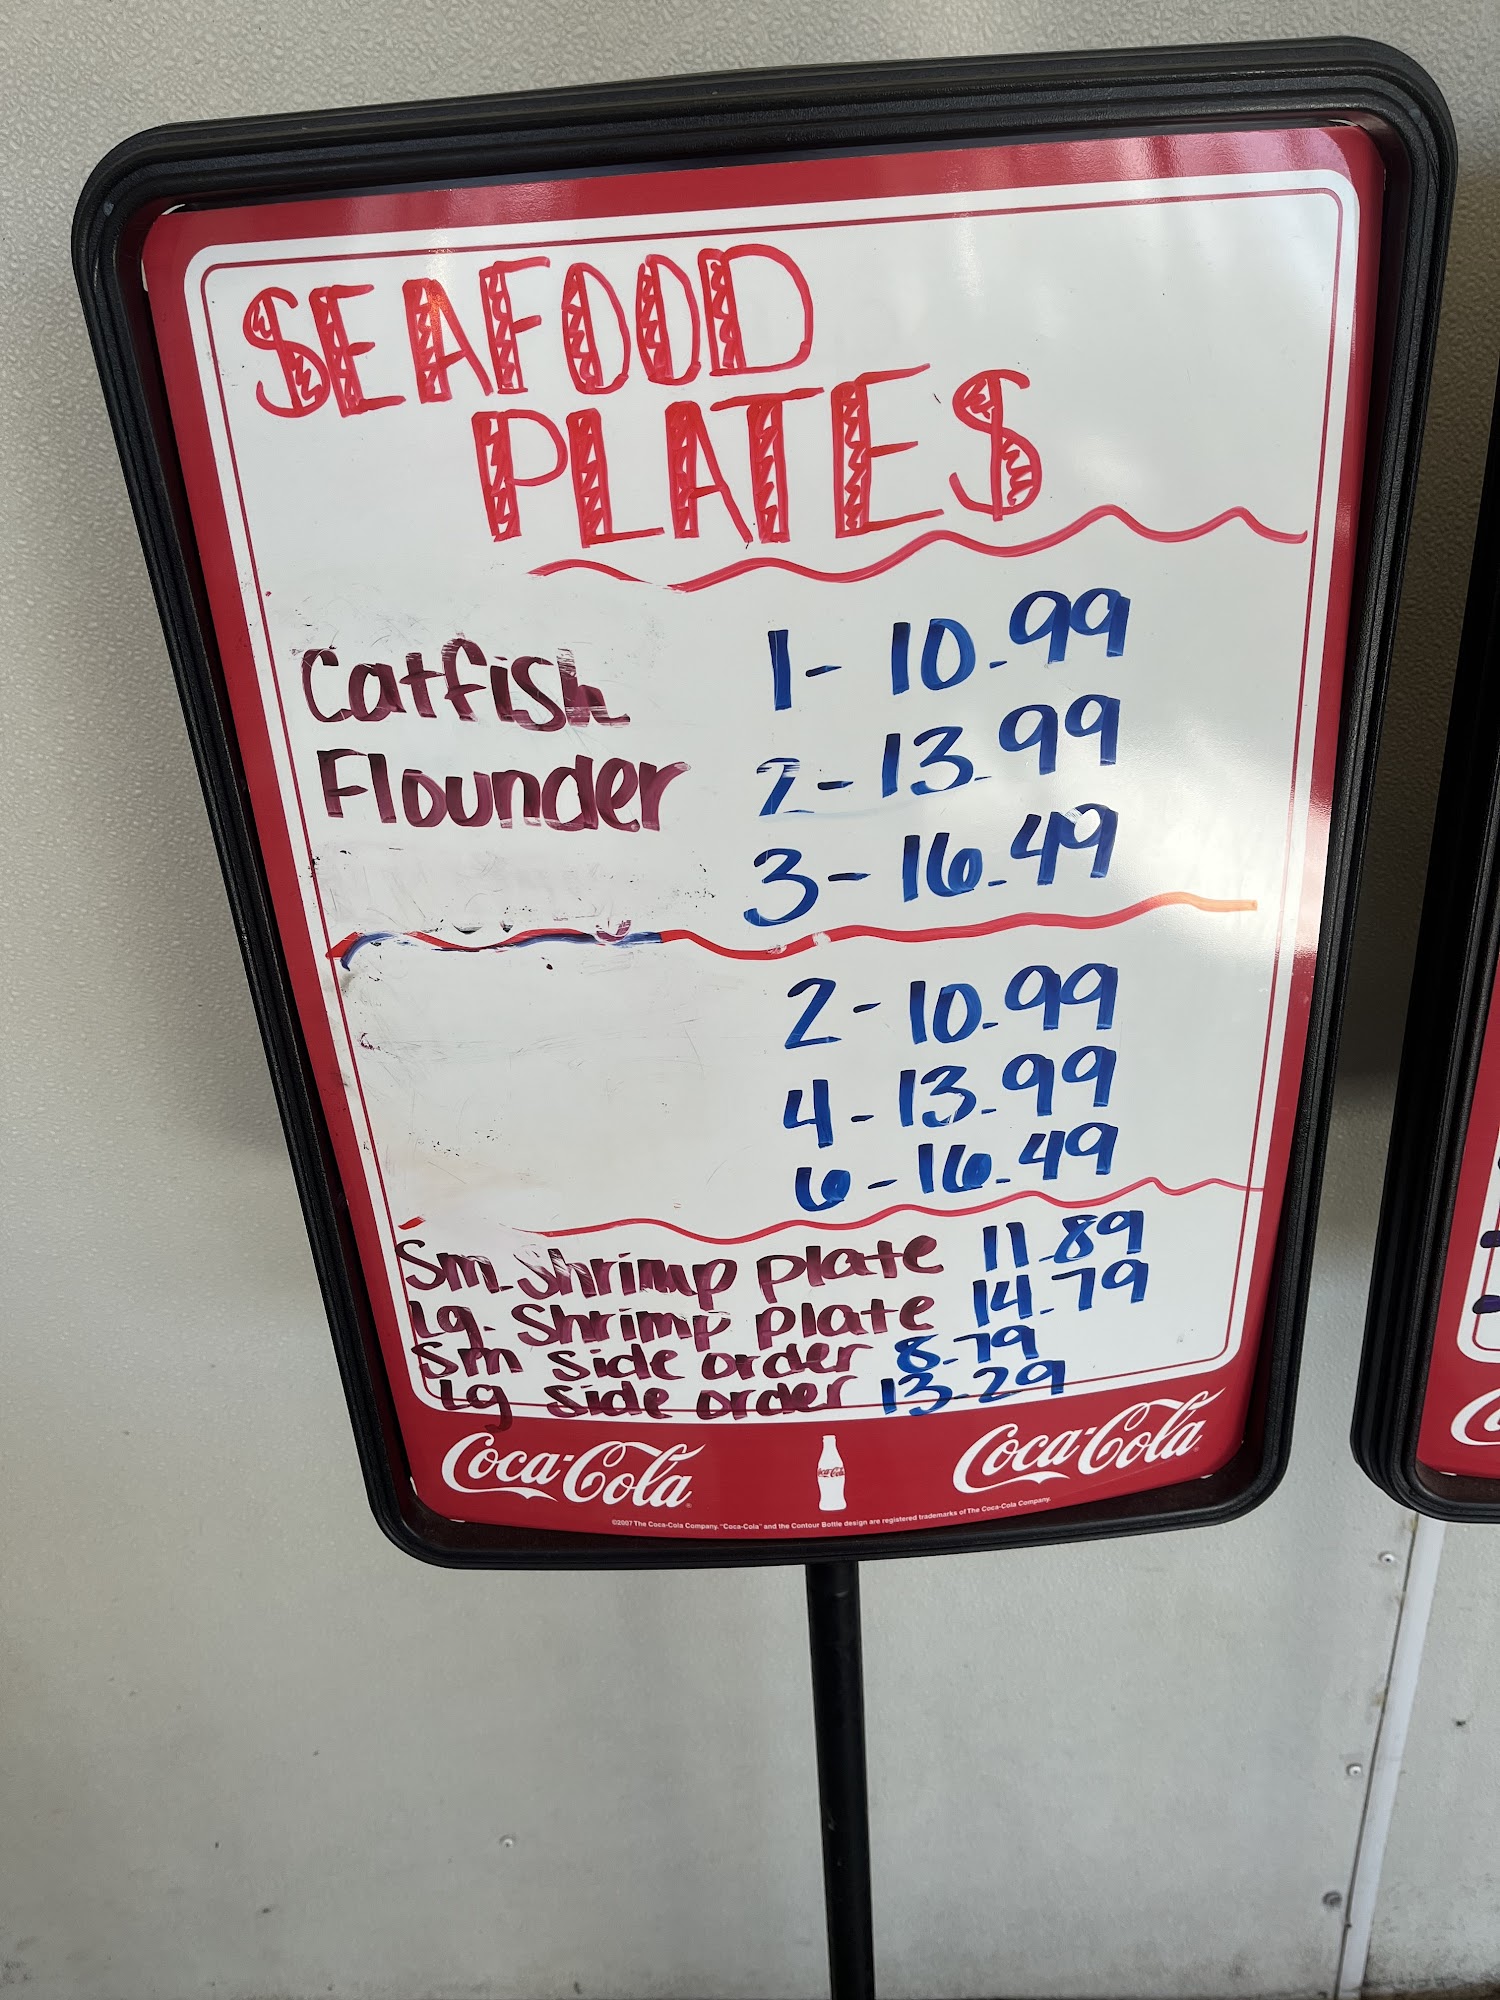 SEAFOOD
PLATES
Catfish 1- 10.99
Flounder 2- 13.99
3- 16.49
2- 10.99
4- 13.99
6- 16.49
Sm. Shrimp plate 11.89
Lg. Shrimp plate 14.79
Sm side order 8.79
Lg side order 13.29
Coca-Cola Coca-Cola Coca-Cola
©2007 The Coca-Cola Company. "Coca-Cola" and the Contour Bottle design are registered trademarks of The Coca-Cola Company.